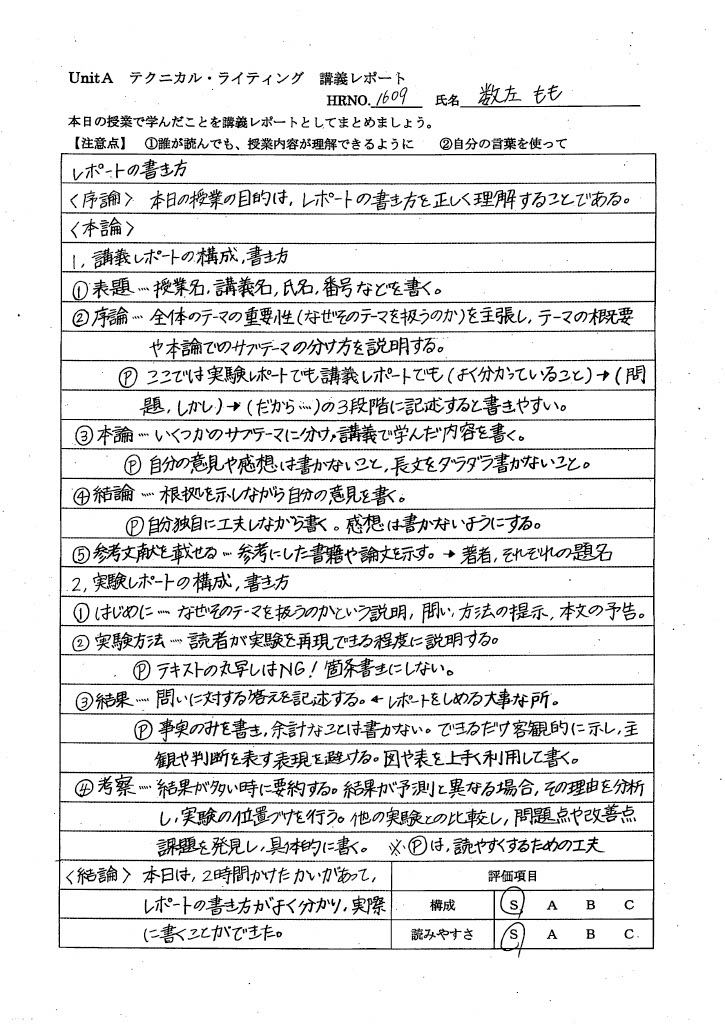 UnitA テクニカル・ライティング 講義レポート
HRNO. 1609 氏名 数左 もも
本日の授業で学んだことを講義レポートとしてまとめましょう。
【注意点】 ①誰が読んでも、授業内容が理解できるように ②自分の言葉を使って
レポートの書き方
〈序論〉 本日の授業の目的は, レポートの書き方を正しく理解することである。
〈本論〉
1, 講義レポートの構成,書き方
①表題…授業名,講義名,氏名,番号などを書く。
②序論…全体のテーマの重要性(なぜそのテーマを扱うのか)を主張し, テーマの概要
や本論でのサブテーマの分け方を説明する。
Ⓟ ここでは実験レポートでも講義レポートでも(よく分かっていること)→(問
題, しかし)→(だから…)の3段階に記述すると書きやすい。
③本論…いくつかのサブテーマに分け,講義で学んだ内容を書く。
Ⓟ 自分の意見や感想は書かないこと,長文をダラダラ書かないこと。
④結論…根拠を示しながら自分の意見を書く。
Ⓟ自分独自に工夫しながら書く。感想は書かないようにする。
⑤参考文献を載せる…参考にした書籍や論文を示す。→著者,それぞれの題名
2, 実験レポートの構成,書き方
①はじめに…なぜそのテーマを扱うのかという説明, 問い, 方法の提示, 本文の予告。
②実験方法…読者が実験を再現できる程度に説明する。
Ⓟ テキストの丸写しはNG! 箇条書きにしない。
③結果…問いに対する答えを記述する。←レポートをしめる大事な所。
Ⓟ 事実のみを書き,余計なことは書かない。できるだけ客観的に示し,主
観や判断を表す表現を避ける。図や表を上手く利用して書く。
④考察…結果が多い時に要約する。結果が予測と異なる場合,その理由を分析
し,実験の位置づけを行う。他の実験との比較し,問題点や改善点
課題を発見し,具体的に書く。 ※Ⓟは,読やすくするための工夫
〈結論〉 本日は, 2時間かけたかいがあって,
レポートの書き方がよく分かり, 実際
に書くことができた。
評価項目
構成 S A B C
読みやすさ S A B C